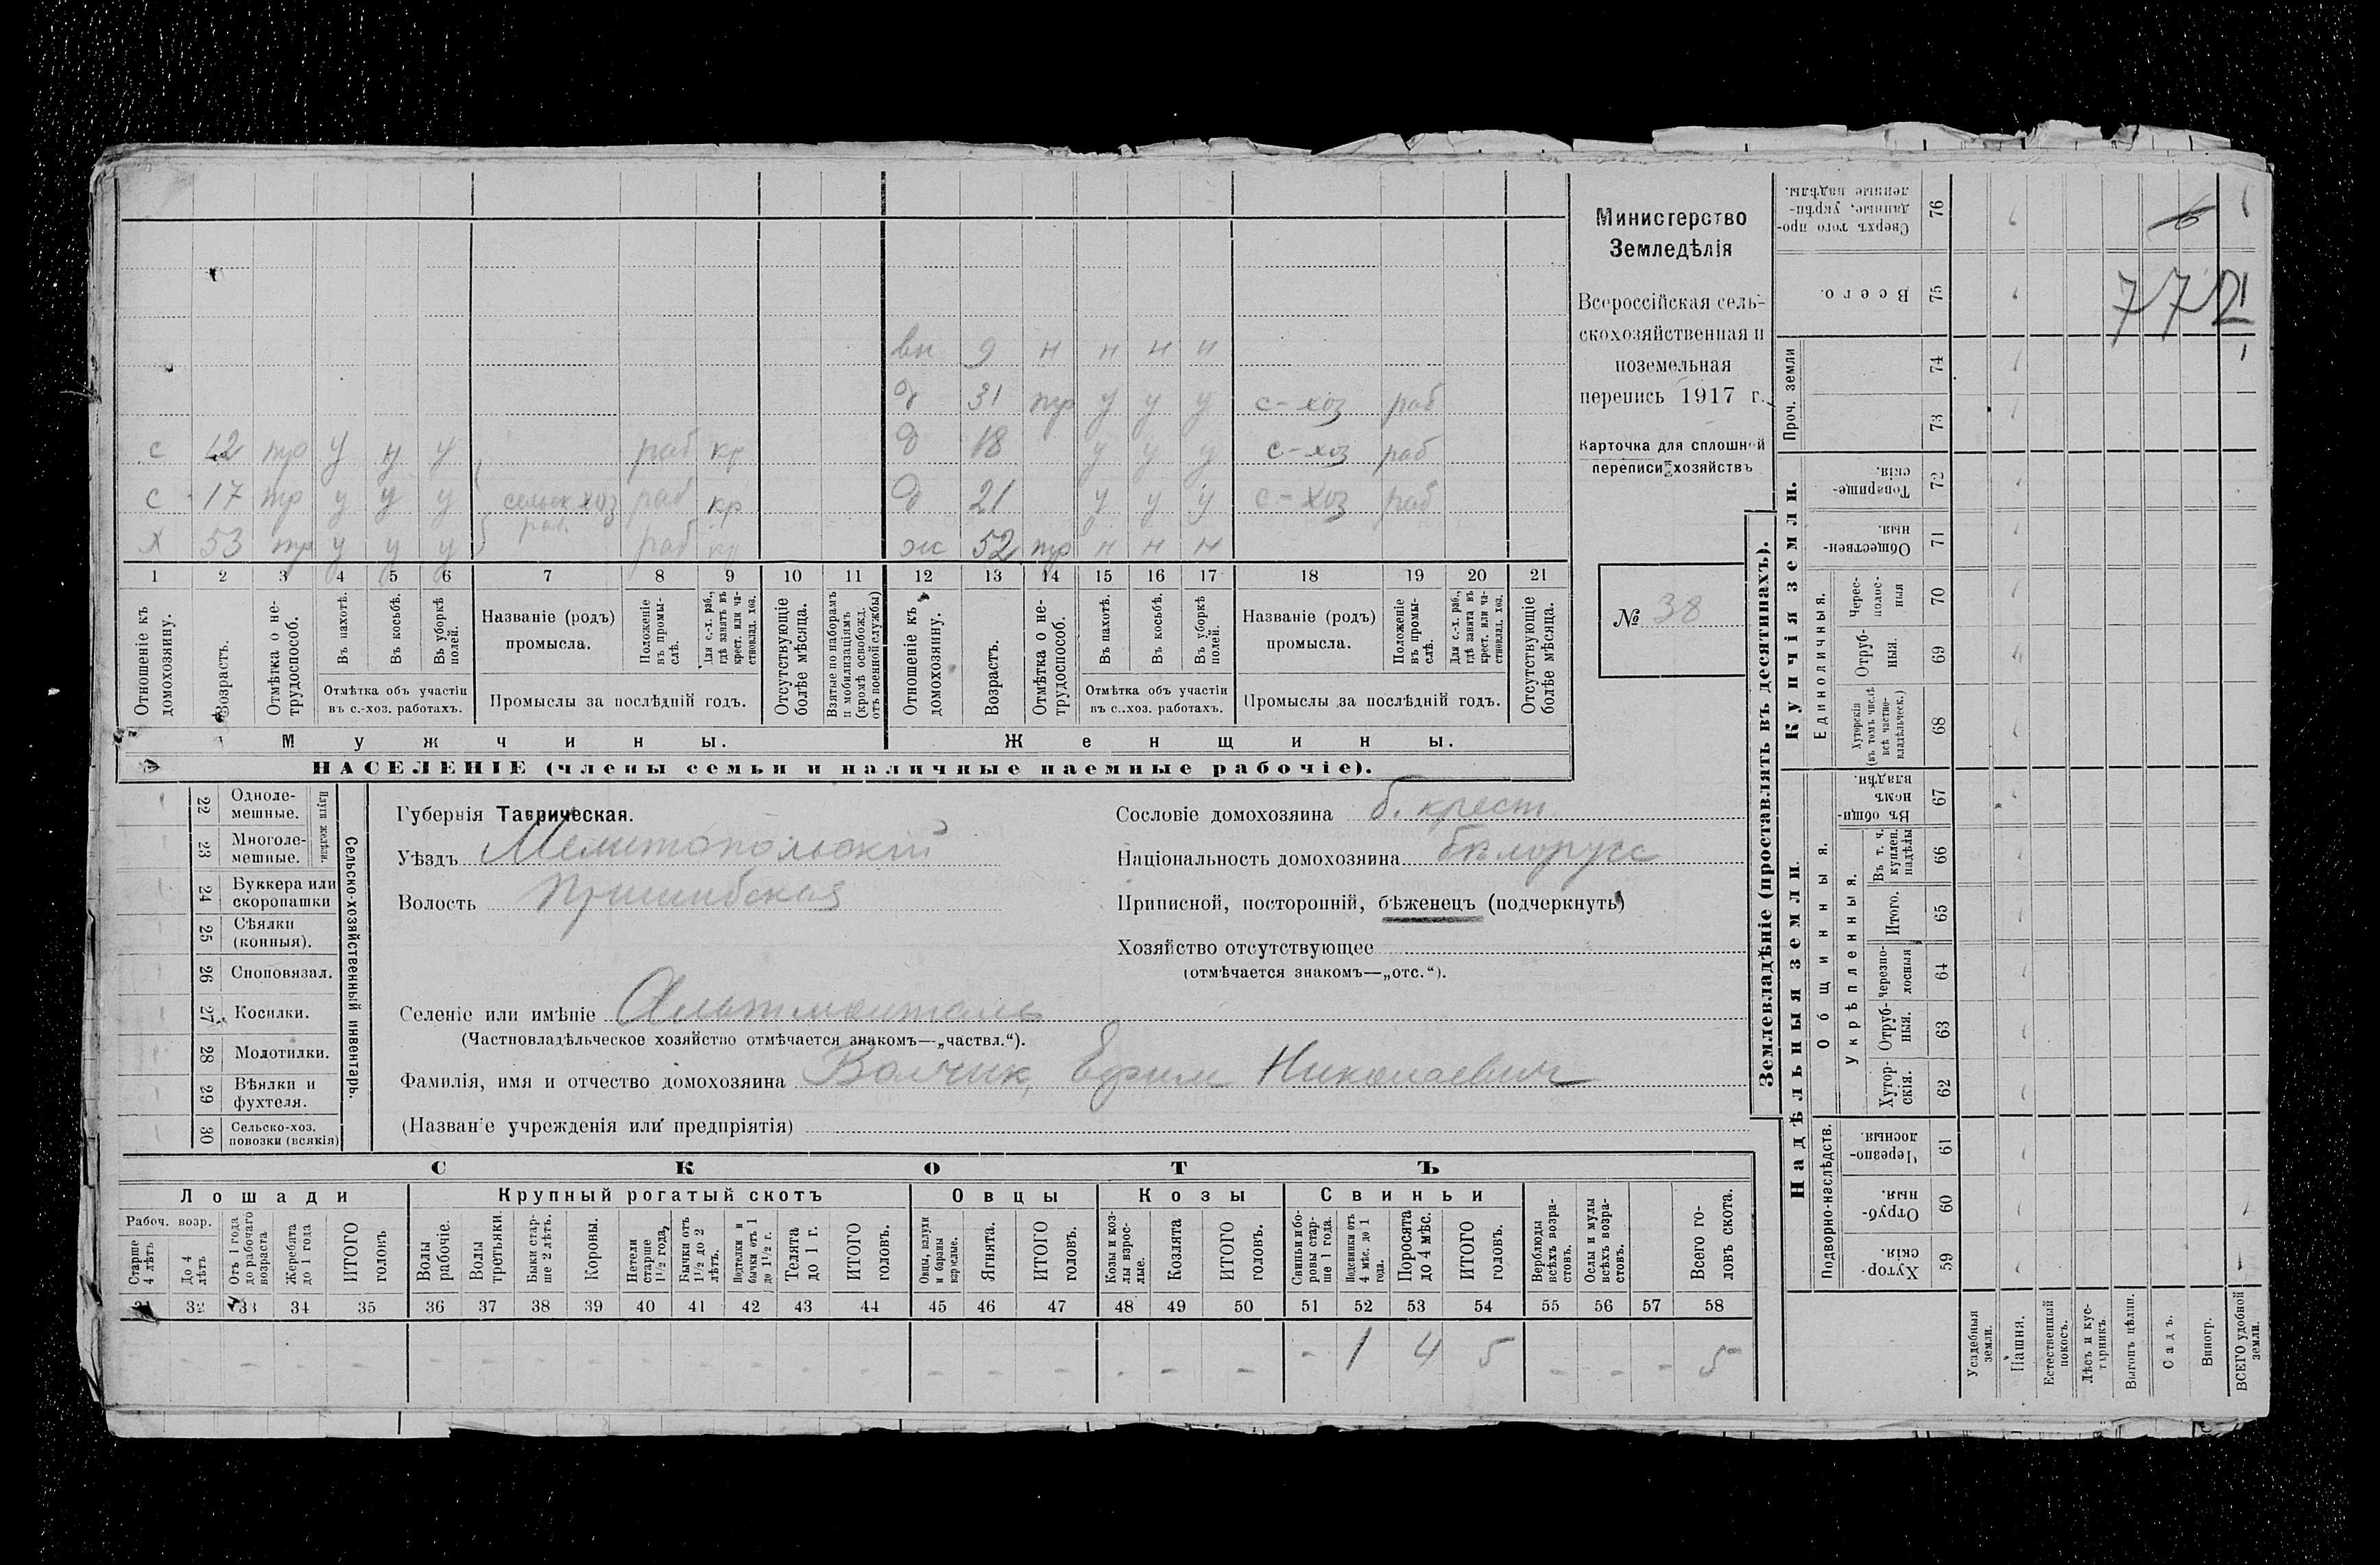 вн 9 н н н н
д 31 тр у у у с-хоз раб
с 12 тр у н у раб кр д 18 у у у с-хоз раб
с 17 тр у у у сельск хоз раб. раб кр д 21 у у у с-хоз раб
х 53 тр у у у раб кр ж 52 тр н н н
1 2 3 4 5 6 7 8 9 10 11 12 13 14 15 16 17 18 19 20 21
Отношеніе къ домохозяину.
Возрастъ.
Отмѣтка о нетрудоспособ.
Въ пахотѣ.
Въ косьбѣ.
Въ уборкѣ полей.
Отмѣтка объ участіи
въ с.-хоз. работахъ.
Названіе (родъ)
промысла.
Положеніе въ промыслѣ.
Для с.-х. раб., гдѣ занятъ въ крест. или частновлад. хоз.
Промыслы за послѣдній годъ.
Отсутствующіе болѣе мѣсяца.
Взятые по наборамъ и мобилизаціямъ (кромѣ освобожд. отъ военной службы)
Отношеніе къ домохозяину.
Возрастъ.
Отмѣтка о нетрудоспособ.
Въ пахотѣ.
Въ косьбѣ.
Въ уборкѣ полей.
Отмѣтка объ участіи
въ с.-хоз. работахъ.
Названіе (родъ)
промысла.
Положеніе въ промыслѣ.
Для с.-х. раб., гдѣ занята въ крест. или частновлад. хоз.
Промыслы за послѣдній годъ.
Отсутствующіе болѣе мѣсяца.
Мужчины. Женщины.
НАСЕЛЕНІЕ (члены семьи и наличные наемные рабочіе).
Министерство
Земледѣлія
Всероссійская сель-
скохозяйственная и
поземельная
перепись 1917 г.
Карточка для сплошной
переписи хозяйствъ
№ 38
22 Одноле-
мешные.
23 Многоле-
мешные.
Плуги желѣзн.
24 Буккера или
скоропашки
25 Сѣялки
(конныя).
26 Сноповязал.
27 Косилки.
28 Молотилки.
29 Вѣялки и
фухтеля.
30 Сельско-хоз.
повозки (всякія)
Сельско-хозяйственный инвентарь.
Губернія Таврическая.
Уѣздъ Мелитопольскій
Волость Пришибская
Селеніе или имѣніе Альтмонталь
(Частновладѣльческое хозяйство отмѣчается знакомъ—„частвл.“).
Фамилія, имя и отчество домохозяина Волчик, Ефим Николаевич
(Названіе учрежденія или предпріятія)
Сословіе домохозяина б. крест.
Національность домохозяина бѣлорусс
Приписной, посторонній, бѣженецъ (подчеркнуть)
Хозяйство отсутствующее
(отмѣчается знакомъ—„отс.“).
СКОТЪ
Лошади Крупный рогатый скотъ Овцы Козы Свиньи
Рабоч. возр.
Старше 4 лѣтъ
До 4 лѣтъ
Отъ 1 года до рабочаго возраста
Жеребята до 1 года
ИТОГО головъ
Волы рабочіе.
Волы третьяки.
Быки старше 2 лѣтъ.
Коровы.
Нетели старше 1½ года,
Бычки отъ 1½ до 2 лѣтъ.
Подтелки и бычки отъ 1 до 1½ г.
Телята до 1 г.
ИТОГО головъ.
Овцы, валухи и бараны взрослые.
Ягнята.
ИТОГО головъ.
Козы и козлы взрослые.
Козлята
ИТОГО головъ.
Свиньи и боровы старше 1 года.
Подсвинки отъ 4 мѣс. до 1 года.
Поросята до 4 мѣс.
ИТОГО головъ.
Верблюды всѣхъ возрастовъ.
Ослы и мулы всѣхъ возрастовъ.
Всего головъ скота.
31 32 33 34 35 36 37 38 39 40 41 42 43 44 45 46 47 48 49 50 51 52 53 54 55 56 57 58
- - - - - - - - - - - - - - - - - - - - 1 4 5 - - - 5
Землевладѣніе (проставлять въ десятинахъ).
Купчія земли.
Надѣльныя земли.
Сверхъ того проданные, укрѣпленные надѣлы. 76
Всего. 75
Проч. земли 74 73
Товарищескія. 72
Общественныя. 71
Единоличныя.
Черезполосныя 70
Отрубныя. 69
Хуторскія (въ томъ числѣ всѣ частновладѣльческ.) 68
Общинныя.
Въ общинномъ владѣн. 67
Укрѣпленныя.
Въ т. ч. куплен. надѣлы 66
Итого. 65
Черезполосныя 64
Отрубныя. 63
Хуторскія. 62
Подворно-наслѣдств.
Черезполосныя. 61
Отрубныя. 60
Хуторскія. 59
Усадебныя земли.
Пашня.
Естественный покосъ.
Лѣсъ и кустарникъ.
Выгонъ цѣлин.
Садъ.
Виногр.
ВСЕГО удобной земли.